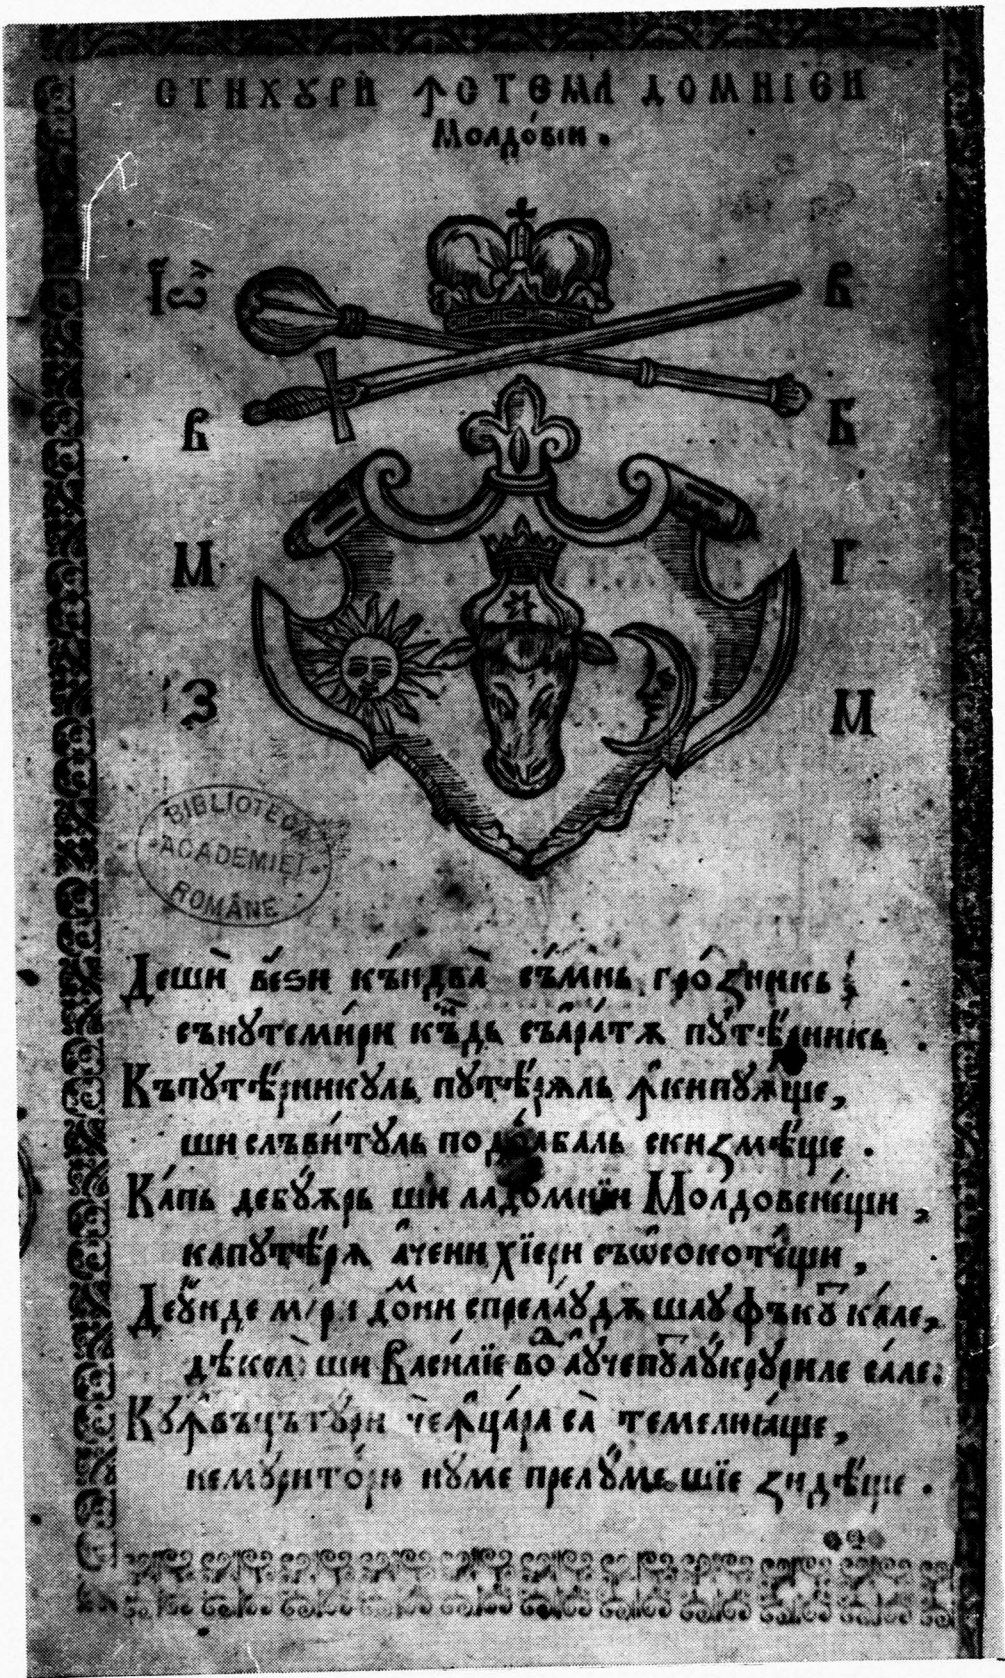 СТИХꙊРЍ ꙞСТЕМА ДОМНІЕИ
Молдо́вїи .
І҆Ѡ҆ В
В Б
М Г
З М
BIBLIOTECA
ACADEMIEI
ROMÂNE
Дешѝ ве́ѕи къ́ндва̀ съ́мнь гро́ꙁникь ,
сънꙋтеми́ри къ́ндь съа҆ра́тѫ пꙋт́ѣрникь .
Къпꙋт́ѣрникꙋль пꙋт́ѣрѫль ꙟкипꙋꙗ́ще ,
ши слъви́тꙋль подо́абаль скиꙁм́ѣще .
Ка́пь дебꙋ́ѫрь ши ладомнїи Молдовене́щи ,
капꙋт́ѣрѣ а҆чеии хїери съѡ҆сокоте́щи ,
Деꙋ҆нде ма́ри до́мни спрела́ꙋдѫ шаꙋ фъкꙋ́т ка́ле ,
д́ѣкол̀ ши Васи́лїе во́д а҆ꙋ҆чепꙋ́т лꙋ́крꙋриле са́ле .
Кꙋꙟвъцътꙋ́ри чеꙟца́ра са̀ темелюꙗ́ще ,
немꙋрито́рю нꙋ́ме прелꙋ́ме шїе ꙁид́ѣще .